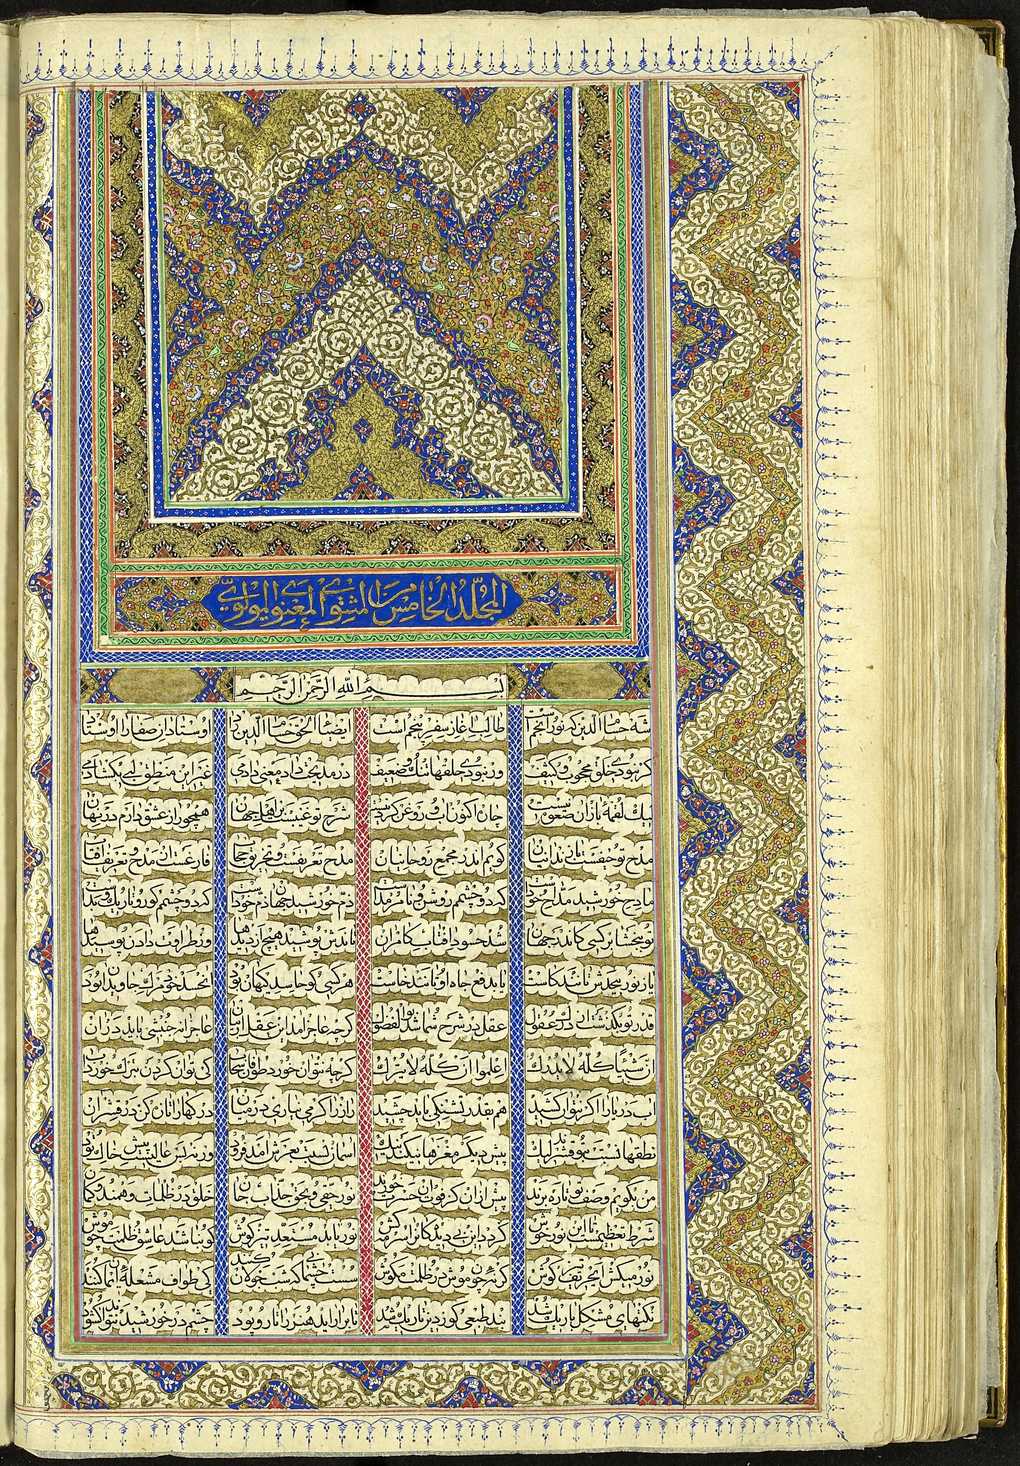 المجلد الخامس من المثنوی المعنوی المولوی
بسم الله الرحمن الرحیم
شه حسام الدین که نور انجم است طالب آغاز سفر پنجم است ای ضیاء الحق حسام الدین راد اوستادان صفا را اوستاد
گر نبودی خلق محجوب و کثیف ور نبودی حلقها تنگ و ضعیف در مدیحت داد معنی دادمی غیر این منطق لبی بگشادمی
لیک لقمه باز آن صعوه نیست چاره اکنون آب و روغن کردنیست شرح تو غبنست با اهل جهان همچو راز عشق دارم در نهان
مدح تو حیفست با زندانیان گویم اندر مجمع روحانیان مدح تعریفست و تخریق حجاب فارغست از مدح و تعریف آفتاب
مادح خورشید مداح خودست که دو چشمم روشن و نامرمدست ذم خورشید جهان ذم خودست که دو چشمم کور و تاریک و بدست
تو ببخشا بر کسی کاندر جهان شد حسود آفتاب کامران تاندش پوشید هیچ از دیدها وز طراوت دادن پوسیدها
یا ز نور بیحدش تانند کاست یا بدفع جاه او تانند خاست هر کسی کو حاسد کیهان بود آن حسد خود مرگ جاویدان بود
قدر تو بگذشت از درک عقول عقل در شرح شما شد بوالفضول گرچه عاجز آمد این عقل از بیان عاجزانه جنبشی باید در آن
ان شیئا کله لا یدرک اعلموا ان کله لا یترک گرچه نتوان خورد طوفان سحاب کی توان کردن بترک خورد آب
آب دریا را اگر نتوان کشید هم بقدر تشنگی باید چشید راز را گر می نیاری در میان درکها را تازه کن از قشر آن
نطقها نسبت بتو قشرست لیک پیش دیگر مغزها نیک آسمان نسبت بعرش آمد فرود ورنه بس عالیست پیش خاک تود
من بگویم وصف تو تا ره برند پیش از آن کز فوت آن حسرت خورند نور حقی و بحق جذاب جان خلق در ظلمات وهمند و گمان
شرط تعظیمست تا این نور خوش گردد این بی دیدگان را سرمه کش نور یابد مستعد تیز گوش کو نباشد عاشق ظلمت چو موش
نور میکش ای حریف تیز گوش گر نه چو موش در ظلمت مکوش سست چشمانی که شب جولان کنند کی طواف مشعله ایمان کنند
نکتهای مشکل باریک شد بند طبعی کو ز دین تاریک شد تا بر آراید هنر را تار و پود چشم در خورشید نتواند گشود